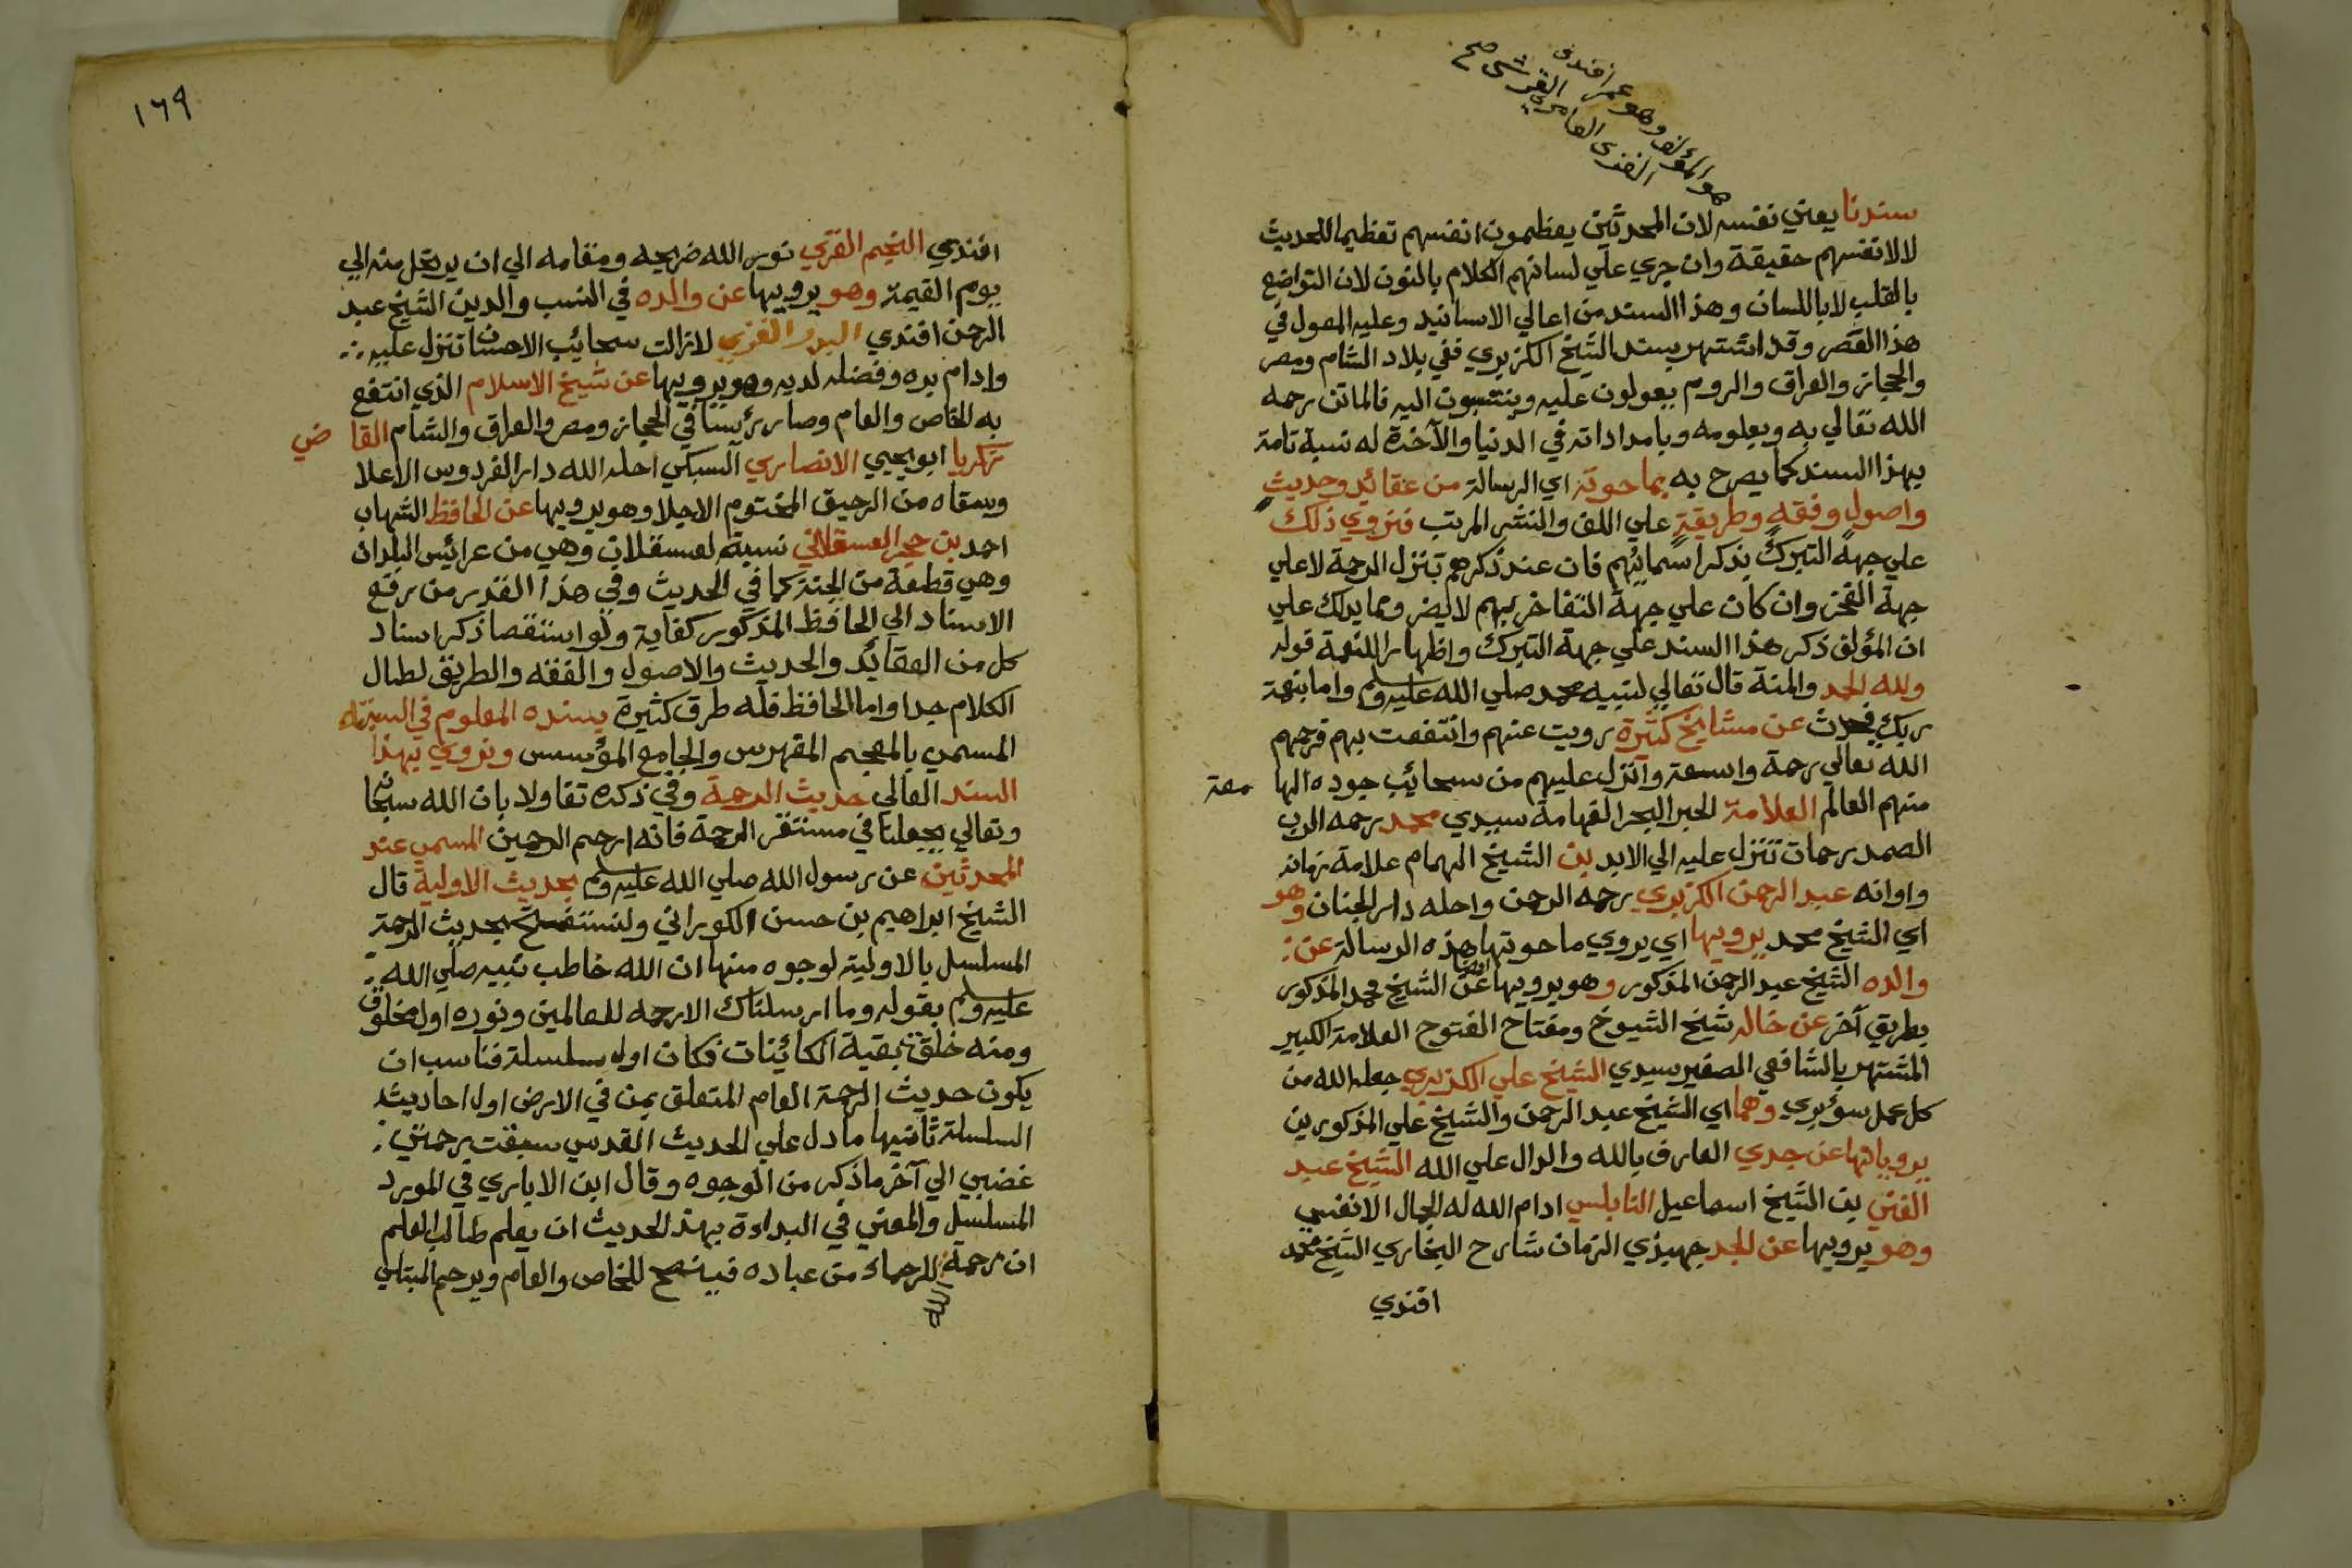 هو المؤلف وهو عمر افندي
الغزي العامري القرشي صح
سندنا يعني نفسه لان المحدثين يعظمون انفسهم تعظيما للحديث
لا لانفسهم حقيقة وان جري علي لسانهم الكلام بالنون لان التواضع
بالقلب لا باللسان وهذا السند من اعالي الاسانيد وعليه المعول في
هذا العصر وقد اشتهر بسند الشيخ الكزبري ففي بلاد الشام ومصر
والحجاز والعراق والروم يعولون عليه وينتسبون اليه فالماتن رحمه
الله تعالي به وبعلومه وبامداداته في الدنيا والآخرة له نسبة تامة
بهذا السند كما يصرح به بما حوته اي الرسالة من عقائد وحديث
واصول وفقه وطريقة علي اللف والنشر المرتب فنروي ذلك
علي جهة التبرك بذكر اسمائهم فان عند ذكرهم تنزل الرحمة لا علي
جهة الفخر وان كان علي جهة التفاخر بهم لا يضر ومما يدلك علي
ان المؤلف ذكر هذا السند علي جهة التبرك واظهارا للنعمة قوله
ولله الحمد والمنة قال تعالي لنبيه محمد صلي الله عليه وسلم واما بنعمة
ربك فحدث عن مشايخ كثيرة رويت عنهم وانتفعت بهم فرحمهم
الله تعالي رحمة واسعة وانزل عليهم من سحائب جوده الهامعة
منهم العالم العلامة الحبر البحر الفهامة سيدي محمد رحمه الرب
الصمد رحمات تتنزل عليه الي الابد بن الشيخ الهمام علامة زمانه
واوانه عبد الرحمن الكزبري رحمه الرحمن واحله دار الجنان وهو
اي الشيخ محمد يرويها اي يروي ما حوتها هذه الرسالة عن
والده الشيخ عبد الرحمن المذكور وهو يرويها ايضا عن الشيخ محمد المذكور
بطريق آخر عن خاله شيخ الشيوخ ومفتاح الفتوح العلامة الكبير
المشتهر بالشافعي الصغير سيدي الشيخ علي الكزبري جعله الله من
كل عمل سوء بري وهما اي الشيخ عبد الرحمن والشيخ علي المذكورين
يرويانها عن جدي العارف بالله والدال علي الله الشيخ عبد
الغني بن الشيخ اسماعيل النابلسي ادام الله له الجمال الانفسي
وهو يرويها عن الجد جهبذي الزمان شارح البخاري الشيخ محمد
افندي
١٦٩
افندي النجم الغزي نور الله ضريحه ومقامه الي ان يرتحل منه الي
يوم القيمة وهو يرويها عن والده في النسب والدين الشيخ عبد
الرحمن افندي البدر الغزي لازالت سحائب الاحسان تنزل عليه
وادام بره وفضله لديه وهو يرويها عن شيخ الاسلام الذي انتفع
به الخاص والعام وصار رئيسا في الحجاز ومصر والعراق والشام القاضي
زكريا ابو يحيي الانصاري السبكي احله الله دار الفردوس الاعلا
وسقاه من الرحيق المختوم الاجلا وهو يرويها عن الحافظ الشهاب
احمد بن حجر العسقلاني نسبة لعسقلان وهي من عرائس البلدان
وهي قطعة من الجنة كما في الحديث وفي هذا القدر من رفع
الاسناد الي الحافظ المذكور كفاية ولو استقصا ذكر اسناد
كل من العقائد والحديث والاصول والفقه والطريق لطال
الكلام جدا واما الحافظ فله طرق كثيرة بسنده المعلوم في
المسمي بالمعجم المفهرس والجامع المؤسس ونروي بهذا
السند العالي حديث الرحمة وفي ذكره تفاولا بان الله سبحانه
وتعالي يجعلنا في مستقر الرحمة فانه ارحم الرحمين المسمي عند
المحدثين عن رسول الله صلي الله عليه وسلم بحديث الاولية قال
الشيخ ابراهيم بن حسن الكوراني ولنستفتح بحديث الرحمة
المسلسل بالاولية لوجوه منها ان الله خاطب نبيه صلي الله
عليه وسلم بقوله وما ارسلناك الا رحمه للعالمين ونوره اول مخلوق
ومنه خلق بقية الكائنات فكان اول سلسلة فناسب ان
يكون حديث الرحمة العام المتعلق بمن في الارض اول احاديث
السلسلة ثانيها ما دل علي الحديث القدسي سبقت رحمتي
غضبي الي آخر ما ذكر من الوجوه وقال ابن الاباري في المورد
المسلسل والمعني في البداءة بهذا الحديث ان يعلم طالب العلم
ان رحمة الله للرحماء من عباده فينصح للخاص والعام ويرحم المبتلي